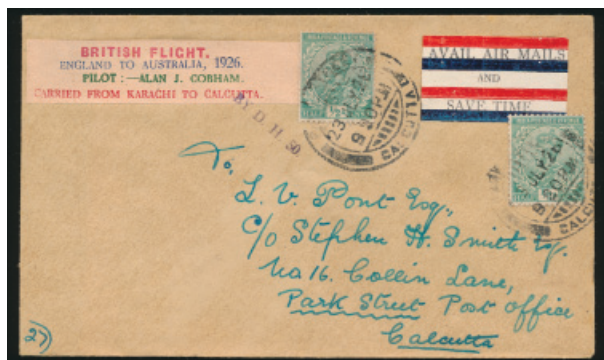 BRITISH FLIGHT.
ENGLAND TO AUSTRALIA, 1926.
PILOT :—ALAN J. COBHAM.
CARRIED FROM KARACHI TO CALCUTTA.
BY D. H. 50.
AVAIL AIR MAILS
AND
SAVE TIME
To,
L. V. Pont Esq.,
C/o Stephen H. Smith Esq.
No 16. Collin Lane,
Park Street Post Office
Calcutta
27